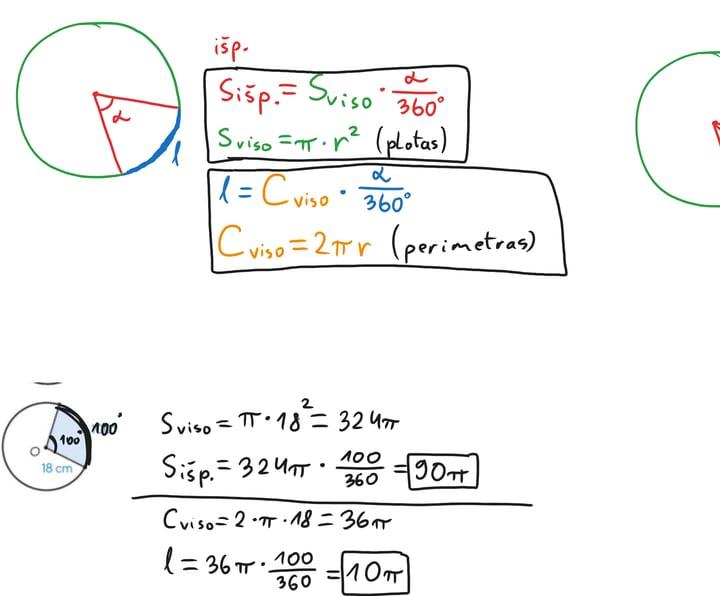 išp.
Sišp. = Sviso · α/360°
Sviso = π · r² (plotas)
α
l
l = Cviso · α/360°
Cviso = 2πr (perimetras)
100°
100°
O
18 cm
Sviso = π · 18² = 324π
Sišp. = 324π · 100/360 = 90π
Cviso = 2 · π · 18 = 36π
l = 36π · 100/360 = 10π